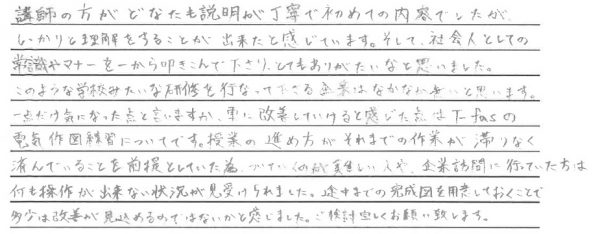 講師の方がどなたも説明が丁寧で初めての内容でしたが、
しっかりと理解をすることが出来たと感じています。そして、社会人としての
常識やマナーを一から叩きこんで下さり、とてもありがたいなと思いました。
このような学校みたいな研修を行なって下さる企業はなかなか無いと思います。
一点だけ気になった点と言いますか、更に改善していけると感じた点はT-fasの
電気作図練習についてです。授業の進め方がそれまでの作業が滞りなく
済んでいることを前提としていた為、ついていくのが難しい人や、企業訪問に行っていた方は
何も操作が出来ない状況が見受けられました。途中までの完成図を用意しておくことで
多少は改善が見込めるのではないかと感じました。ご検討宜しくお願い致します。